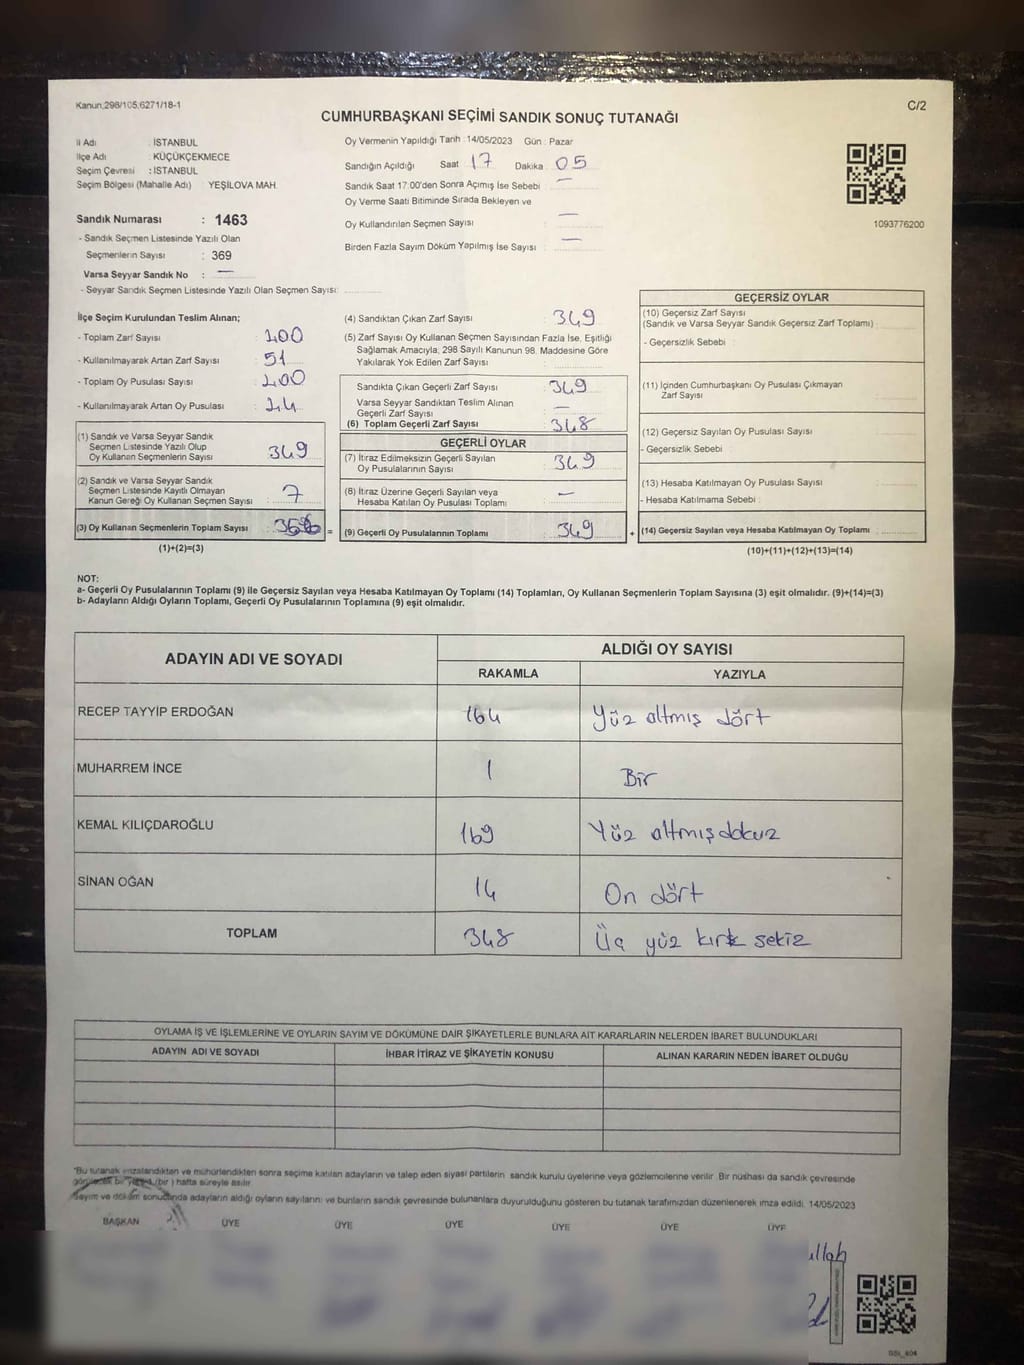 Kanun;298/105;6271/18-1
C/2
CUMHURBAŞKANI SEÇİMİ SANDIK SONUÇ TUTANAĞI
İl Adı : İSTANBUL
İlçe Adı : KÜÇÜKÇEKMECE
Seçim Çevresi : İSTANBUL
Seçim Bölgesi (Mahalle Adı) : YEŞİLOVA MAH.
Oy Vermenin Yapıldığı Tarih : 14/05/2023 Gün : Pazar
Sandığın Açıldığı Saat : 17 Dakika : 05
Sandık Saat 17.00'den Sonra Açımış İse Sebebi : —
Oy Verme Saati Bitiminde Sırada Bekleyen ve
Oy Kullandırılan Seçmen Sayısı : —
Birden Fazla Sayım Döküm Yapılmış İse Sayısı : —
1093776200
Sandık Numarası : 1463
- Sandık Seçmen Listesinde Yazılı Olan
Seçmenlerin Sayısı : 369
Varsa Seyyar Sandık No : —
- Seyyar Sandık Seçmen Listesinde Yazılı Olan Seçmen Sayısı:
İlçe Seçim Kurulundan Teslim Alınan;
- Toplam Zarf Sayısı : 400
- Kullanılmayarak Artan Zarf Sayısı : 51
- Toplam Oy Pusulası Sayısı : 400
- Kullanılmayarak Artan Oy Pusulası :
(1) Sandık ve Varsa Seyyar Sandık
Seçmen Listesinde Yazılı Olup
Oy Kullanan Seçmenlerin Sayısı : 349
(2) Sandık ve Varsa Seyyar Sandık
Seçmen Listesinde Kayıtlı Olmayan
Kanun Gereği Oy Kullanan Seçmen Sayısı : 7
(3) Oy Kullanan Seçmenlerin Toplam Sayısı :
(1)+(2)=(3)
(4) Sandıktan Çıkan Zarf Sayısı : 349
(5) Zarf Sayısı Oy Kullanan Seçmen Sayısından Fazla İse, Eşitliği
Sağlamak Amacıyla, 298 Sayılı Kanunun 98. Maddesine Göre
Yakılarak Yok Edilen Zarf Sayısı :
Sandıkta Çıkan Geçerli Zarf Sayısı : 349
Varsa Seyyar Sandıktan Teslim Alınan
Geçerli Zarf Sayısı : —
(6) Toplam Geçerli Zarf Sayısı : 348
GEÇERLİ OYLAR
(7) İtiraz Edilmeksizin Geçerli Sayılan
Oy Pusulalarının Sayısı : 349
(8) İtiraz Üzerine Geçerli Sayılan veya
Hesaba Katılan Oy Pusulası Toplamı : —
= (9) Geçerli Oy Pusulalarının Toplamı : 349
GEÇERSİZ OYLAR
(10) Geçersiz Zarf Sayısı
(Sandık ve Varsa Seyyar Sandık Geçersiz Zarf Toplamı) :
- Geçersizlik Sebebi :
(11) İçinden Cumhurbaşkanı Oy Pusulası Çıkmayan
Zarf Sayısı :
(12) Geçersiz Sayılan Oy Pusulası Sayısı :
- Geçersizlik Sebebi :
(13) Hesaba Katılmayan Oy Pusulası Sayısı :
- Hesaba Katılmama Sebebi :
+ (14) Geçersiz Sayılan veya Hesaba Katılmayan Oy Toplamı :
(10)+(11)+(12)+(13)=(14)
NOT:
a- Geçerli Oy Pusulalarının Toplamı (9) ile Geçersiz Sayılan veya Hesaba Katılmayan Oy Toplamı (14) Toplamları, Oy Kullanan Seçmenlerin Toplam Sayısına (3) eşit olmalıdır. (9)+(14)=(3)
b- Adayların Aldığı Oyların Toplamı, Geçerli Oy Pusulalarının Toplamına (9) eşit olmalıdır.
ADAYIN ADI VE SOYADI ALDIĞI OY SAYISI
RAKAMLA YAZIYLA
RECEP TAYYİP ERDOĞAN 164 Yüz altmış dört
MUHARREM İNCE 1 Bir
KEMAL KILIÇDAROĞLU 169 Yüz altmış dokuz
SİNAN OĞAN 14 On dört
TOPLAM 348 Üç yüz kırk sekiz
OYLAMA İŞ VE İŞLEMLERİNE VE OYLARIN SAYIM VE DÖKÜMÜNE DAİR ŞİKAYETLERLE BUNLARA AİT KARARLARIN NELERDEN İBARET BULUNDUKLARI
ADAYIN ADI VE SOYADI İHBAR İTİRAZ VE ŞİKAYETİN KONUSU ALINAN KARARIN NEDEN İBARET OLDUĞU
*Bu tutanak imzalandıktan ve mühürlendikten sonra seçime katılan adayların ve talep eden siyasi partilerin sandık kurulu üyelerine veya gözlemcilerine verilir. Bir nüshası da sandık çevresinde
görülecek bir yere 1 (bir) hafta süreyle asılır.
Sayım ve döküm sonucunda adayların aldığı oyların sayılarını ve bunların sandık çevresinde bulunanlara duyurulduğunu gösteren bu tutanak tarafımızdan düzenlenerek imza edildi. 14/05/2023
BAŞKAN ÜYE ÜYE ÜYE ÜYE ÜYE ÜYE